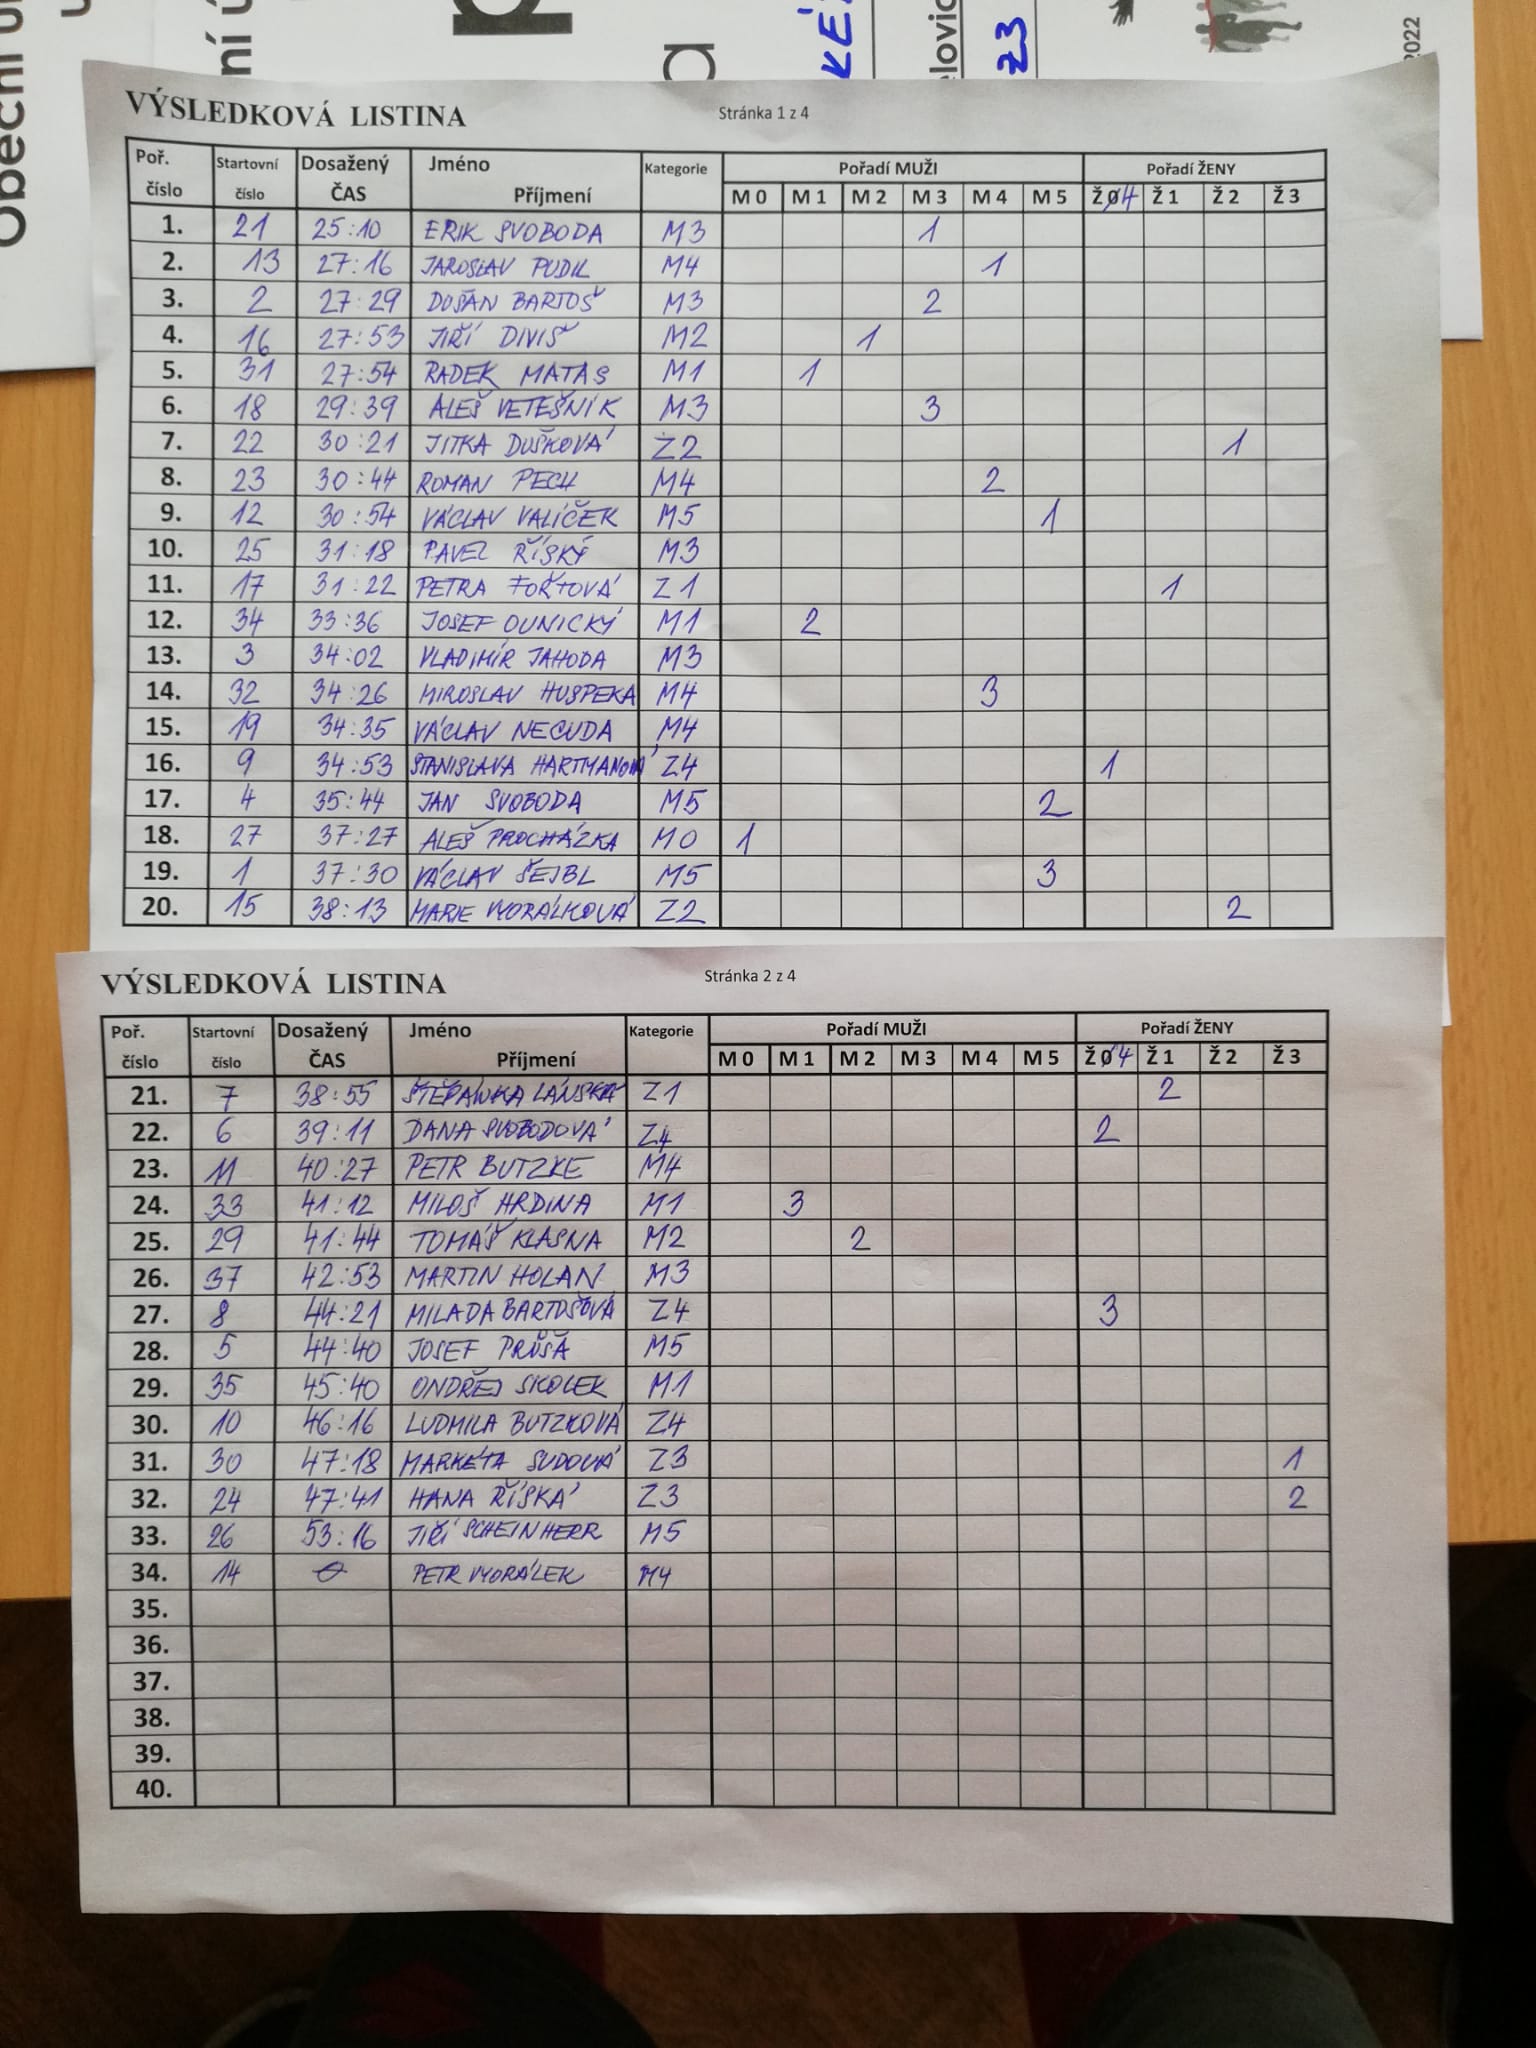 Obecní úř
ní ú
KÉ
elovic
Z3
2022
VÝSLEDKOVÁ LISTINA Stránka 1 z 4
Poř. číslo Startovní číslo Dosažený ČAS Jméno Příjmení Kategorie Pořadí MUŽI Pořadí ŽENY
M 0 M 1 M 2 M 3 M 4 M 5 Ž 4 Ž 1 Ž 2 Ž 3
1. 21 25:10 ERIK SVOBODA M3 1
2. 13 27:16 JAROSLAV PUDIL M4 1
3. 2 27:29 DUŠAN BARTOŠ M3 2
4. 16 27:53 JIŘÍ DIVIŠ M2 1
5. 31 27:54 RADEK MATAS M1 1
6. 18 29:39 ALEŠ VETEŠNÍK M3 3
7. 22 30:21 JITKA DUŠKOVÁ Z2 1
8. 23 30:44 ROMAN PECH M4 2
9. 12 30:54 VÁCLAV VALÍČEK M5 1
10. 25 31:18 PAVEL ŘÍSKÝ M3
11. 17 31:22 PETRA FOŘTOVÁ Z1 1
12. 34 33:36 JOSEF DUNICKÝ M1 2
13. 3 34:02 VLADIMÍR JAHODA M3
14. 32 34:26 MIROSLAV HUSPEKA M4 3
15. 19 34:35 VÁCLAV NECUDA M4
16. 9 34:53 STANISLAVA HARTMANOVÁ Z4 1
17. 4 35:44 JAN SVOBODA M5 2
18. 27 37:27 ALEŠ PROCHÁZKA M0 1
19. 1 37:30 VÁCLAV ŠEJBL M5 3
20. 15 38:13 MARIE VYORÁLKOVÁ Z2 2
VÝSLEDKOVÁ LISTINA Stránka 2 z 4
Poř. číslo Startovní číslo Dosažený ČAS Jméno Příjmení Kategorie Pořadí MUŽI Pořadí ŽENY
M 0 M 1 M 2 M 3 M 4 M 5 Ž 4 Ž 1 Ž 2 Ž 3
21. 7 38:55 ŠTĚPÁNKA LÁNSKÁ Z1 2
22. 6 39:11 DANA SVOBODOVÁ Z4 2
23. 11 40:27 PETR BUTZKE M4
24. 33 41:12 MILOŠ HRDINA M1 3
25. 29 41:44 TOMÁŠ KLASNA M2 2
26. 37 42:53 MARTIN HOLAN M3
27. 8 44:21 MILADA BARTOŠOVÁ Z4 3
28. 5 44:40 JOSEF PRŮŠA M5
29. 35 45:40 ONDŘEJ SKOLEK M1
30. 10 46:16 LUDMILA BUTZKOVÁ Z4
31. 30 47:18 MARKÉTA SUDOVÁ Z3 1
32. 24 47:41 HANA ŘÍSKÁ Z3 2
33. 26 53:16 JIŘÍ SCHEINHERR M5
34. 14 PETR VYORÁLEK M4
35.
36.
37.
38.
39.
40.